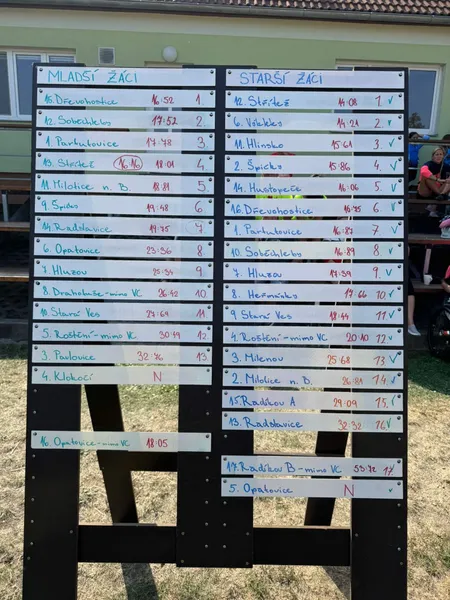 MLADŠÍ ŽÁCI
15. Dřevohostice 16:52 1.
12. Soběchleby 17:52 2.
1. Partutovice 17:78 3.
13. Střítež 16:16 18:01 4.
11. Milotice n. B. 18:81 5.
9. Špičky 19:48 6
14. Radslavice 19:75 7
6. Opatovice 23:36 8
7. Hluzov 25:34 9
8. Drahotuše-mimo VC 26:42 10
10. Stará Ves 27:69 11
5. Roštění-mimo VC 30:49 12
3. Pavlovice 32:76 13.
4. Klokočí N
16. Opatovice-mimo VC 18:05
STARŠÍ ŽÁCI
12. Střítež 14:08 1. ✓
6. Všechovice 14:21 2. ✓
11. Hlinsko 15:61 3. ✓
2. Špičky 15:86 4. ✓
14. Hustopeče 16:06 5. ✓
16. Dřevohostice 16:75 6. ✓
1. Partutovice 16:87 7 ✓
10. Soběchleby 16:89 8. ✓
7. Hluzov 17:39 9. ✓
8. Heřmánky 17:66 10. ✓
9. Stará Ves 18:44 11 ✓
4. Roštění-mimo VC 20:10 12 ✓
3. Milenov 25:68 13 ✓
2. Milotice n. B. 26:81 14. ✓
15. Radíkov A 29:09 15. ✓
13. Radslavice 32:32 16 ✓
17. Radíkov B-mimo VC 53:72 17
5. Opatovice N ✓